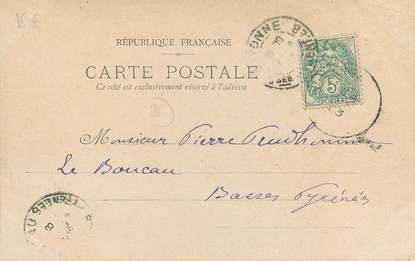 RÉPUBLIQUE FRANÇAISE
CARTE POSTALE
Ce côté est exclusivement réservé à l'adresse
5
Monsieur Pierre Prudhomme
Le Boucau
Basses Pyrénées